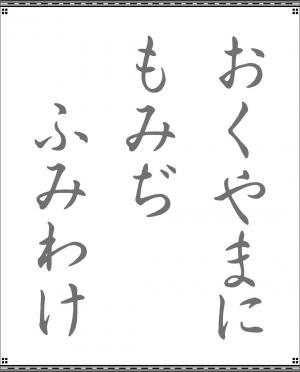 おくやまに
もみぢ
ふみわけ